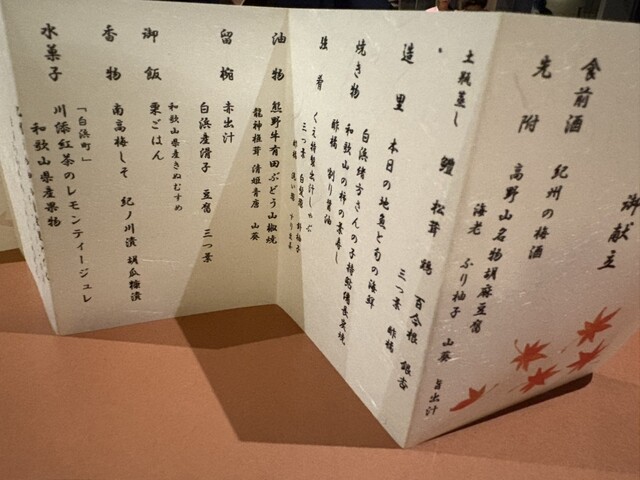 御献立
食前酒 紀州の梅酒
先附 高野山名物胡麻豆腐
海老 ふり柚子 山葵 旨出汁
土瓶蒸し 鱧 松茸 鶏 百合根 銀杏
三つ葉 酢橘
造里 本日の地魚と旬の海鮮
焼き物 白浜緒方さんの子持鮎備長炭焼
和歌山の柿の素寿し
酢橘 割り醤油
強肴 くえ特製出汁しゃぶ
三つ葉 白髪葱
油物 熊野牛有田ぶどう山椒焼
龍神椎茸 清姫青唐 山葵
留椀 赤出汁
白浜産滑子 豆腐 三つ葉
御飯 栗ごはん
和歌山県産きぬむすめ
香物 南高梅しそ 紀ノ川漬 胡瓜糠漬
水菓子 「白浜町」
川添紅茶のレモンティージュレ
和歌山県産果物